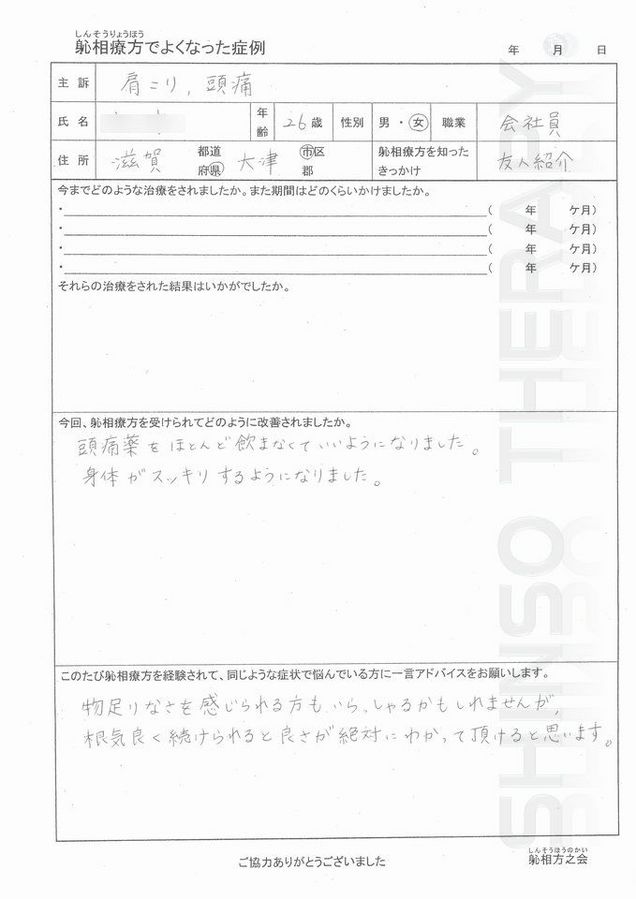 しんそうりょうほう
躰相療方でよくなった症例
年 月 日
主訴 肩こり, 頭痛
氏名 年齢 26歳 性別 男・女 職業 会社員
住所 滋賀 都道府県 大津 市区郡 躰相療方を知ったきっかけ 友人紹介
今までどのような治療をされましたか。また期間はどのくらいかけましたか。
・ ( 年 ケ月)
・ ( 年 ケ月)
・ ( 年 ケ月)
・ ( 年 ケ月)
それらの治療をされた結果はいかがでしたか。
今回、躰相療方を受けられてどのように改善されましたか。
頭痛薬をほとんど飲まなくていいようになりました。
身体がスッキリするようになりました。
このたび躰相療方を経験されて、同じような症状で悩んでいる方に一言アドバイスをお願いします。
物足りなさを感じられる方もいらっしゃるかもしれませんが、
根気良く続けられると良さが絶対にわかって頂けると思います。
ご協力ありがとうございました
しんそうほうのかい
躰相方之会
SHINSO THERAPY